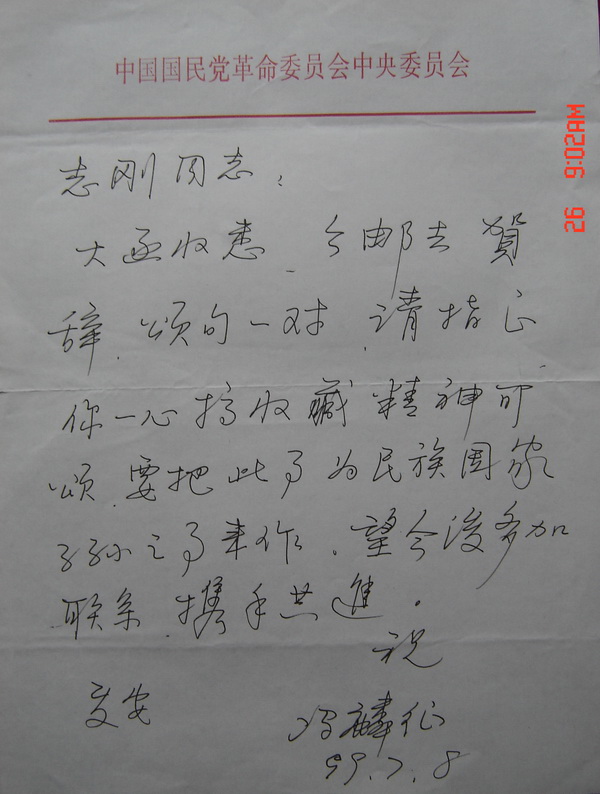 中国国民党革命委员会中央委员会
志刚同志：
大函收悉、今邮去賀
辞、颂句一对、请指正
你一心搞收藏精神可
颂、要把此事为民族国家
子孙之事来作、望今後多加
联系、携手共進。
祝
安
麟征
99.7.8
26 9:02AM